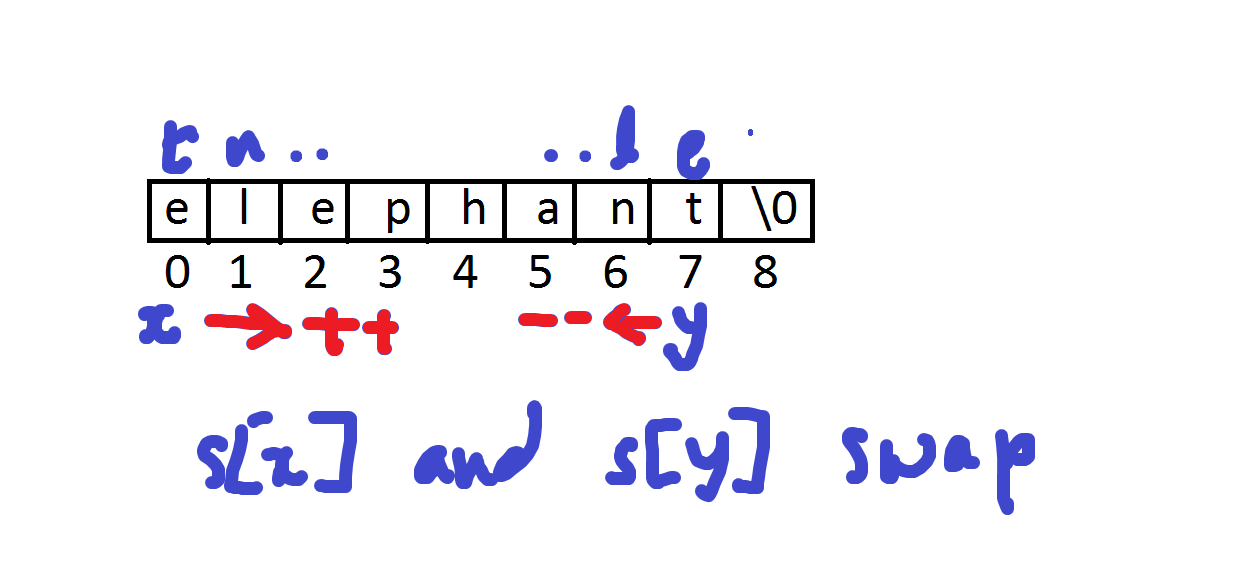 t n .. .. l e
e l e p h a n t \0
0 1 2 3 4 5 6 7 8
x → ++ -- ← y
s[x] and s[y] swap